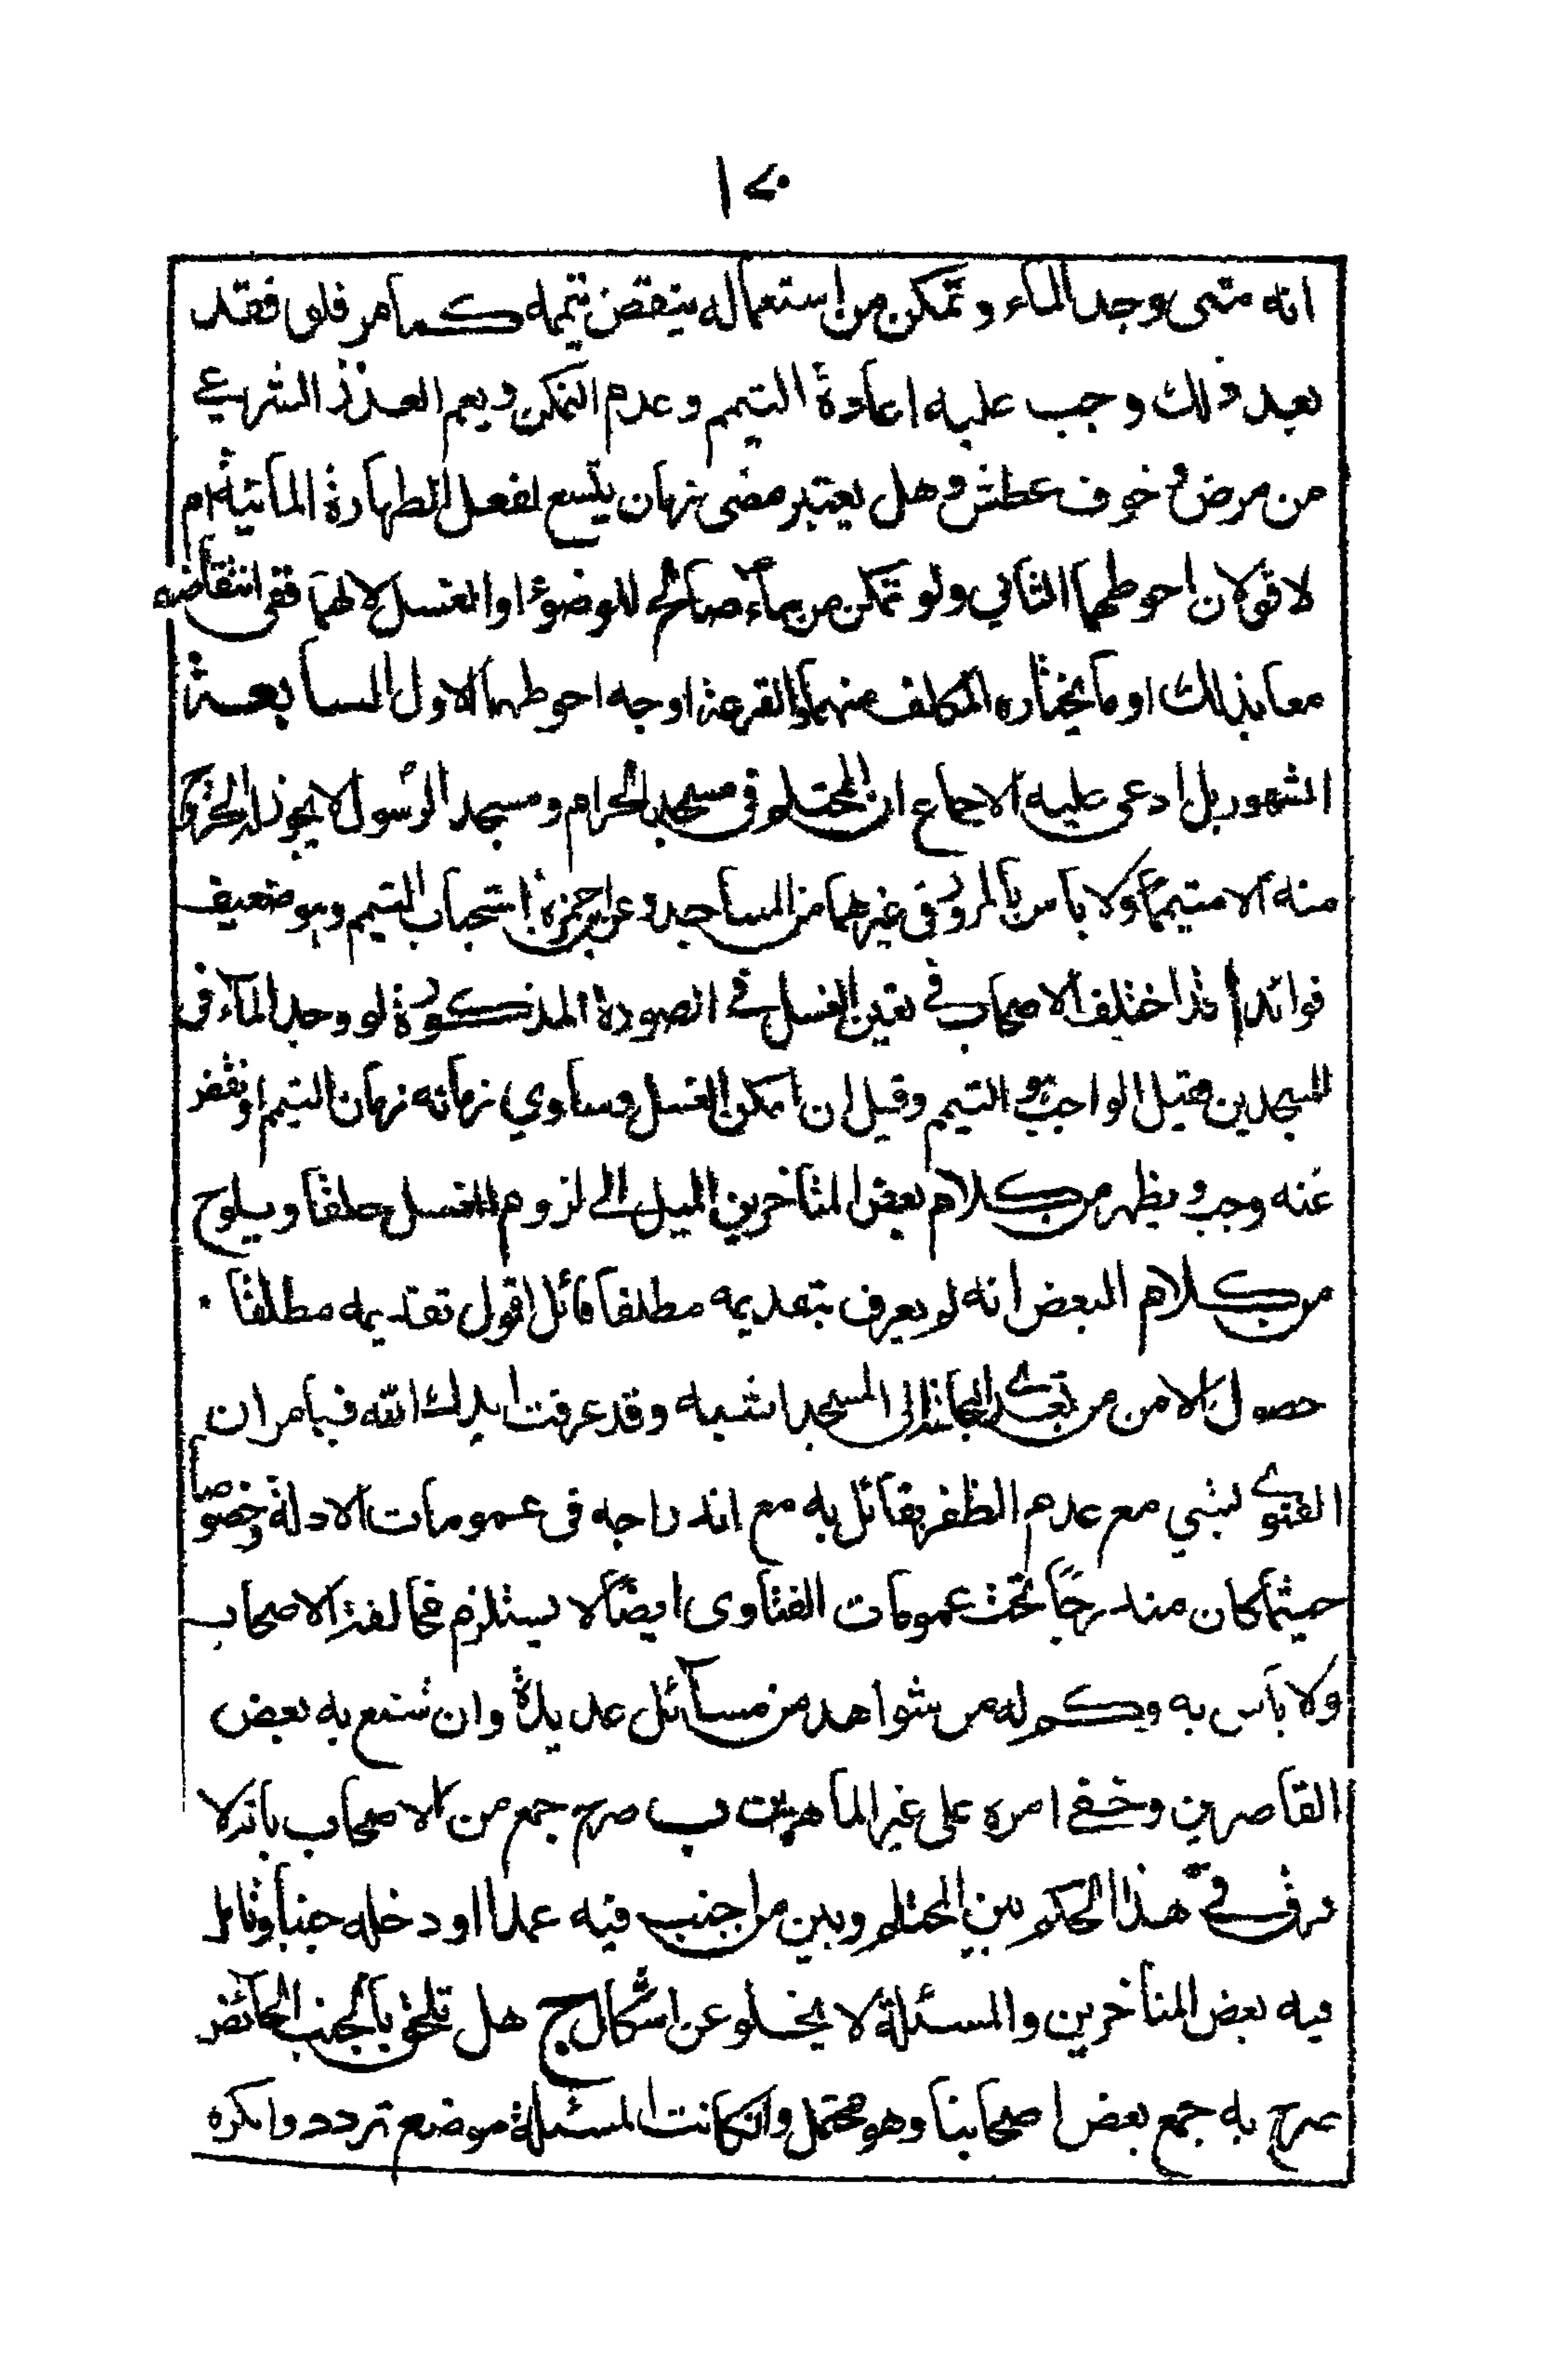 انه متى وجد الماء وتمكن من استعماله ينتقض تيممه كما مر فلو فقد
بعد ذلك وجب عليه اعادة التيمم وعدم التمكن ويعم العذر الشرعي
من مرض وخوف عطش وهل يعتبر مضى زمان يتسع لفعل الطهارة المائية ام
لا قولان احوطهما الثاني ولو تمكن من ماء صالح للوضوء او الغسل لا لهما ففى انتقاضه
معا بذلك او ما يختاره المكلف منهما او القرعة اوجه احوطهما الاول السابعة
المشهور بل ادعى عليه الاجماع ان المحتلم فى مسجد الحرام ومسجد الرسول لا يجوز له الخروج
منه الا متيمما ولا باس بالمرور فى غيرهما من المساجد وعن ابن حمزة استحباب التيمم وهو ضعيف
فوائد ا قد اختلف الاصحاب في تعين الغسل في الصورة المذكورة لو وجد الماء فى
المسجدين فقيل الواجب هو التيمم وقيل ان امكن الغسل وساوي زمانه زمان التيمم او نقص
عنه وجب ويظهر من كلام بعض المتاخرين الميل الى لزوم الغسل مطلقا ويلوح
من كلام البعض انه لو يعرف بتقديمه مطلقا قائل اقول تقديمه مطلقا
حصول الامن من تعدى النجاسة الى المسجد اشبه وقد عرفت ايدك الله فيما مر ان
الفتوى لشي مع عدم الظفر بقائل به مع اندراجه فى عمومات الادلة وخصوصا
حيثما كان مندرجا تحت عمومات الفتاوى ايضا لا يستلزم مخالفة الاصحاب
ولا باس به وكم له من شواهد من مسائل عديدة وان شنع به بعض
القاصرين وخفى امره على غير الماهرين ب صرح جمع من الاصحاب بانه لا
فرق في هذا الحكم بين المحتلم وبين من اجنب فيه عمدا او دخله جنبا وتامل
فيه بعض المتاخرين والمسئلة لا يخلو عن اشكال ج هل تلحق بالجنب الحائض
صرح به جمع بعض اصحابنا وهو محتمل وان كانت المسئلة موضع تردد وانكره